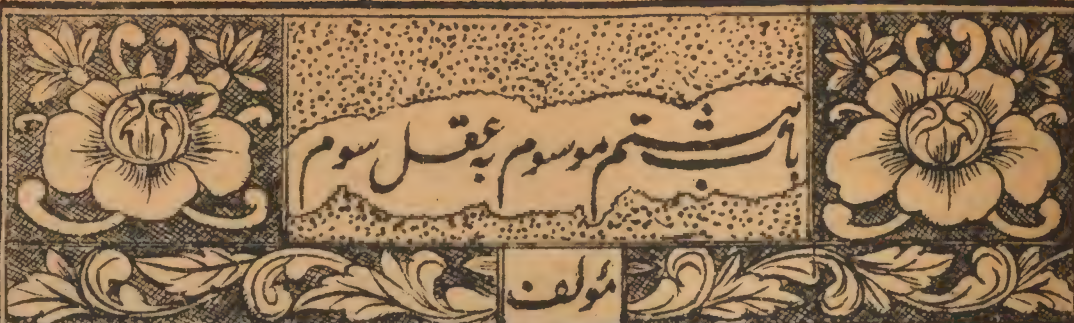 باب هشتم موسوم به عقل سوم
مؤلف